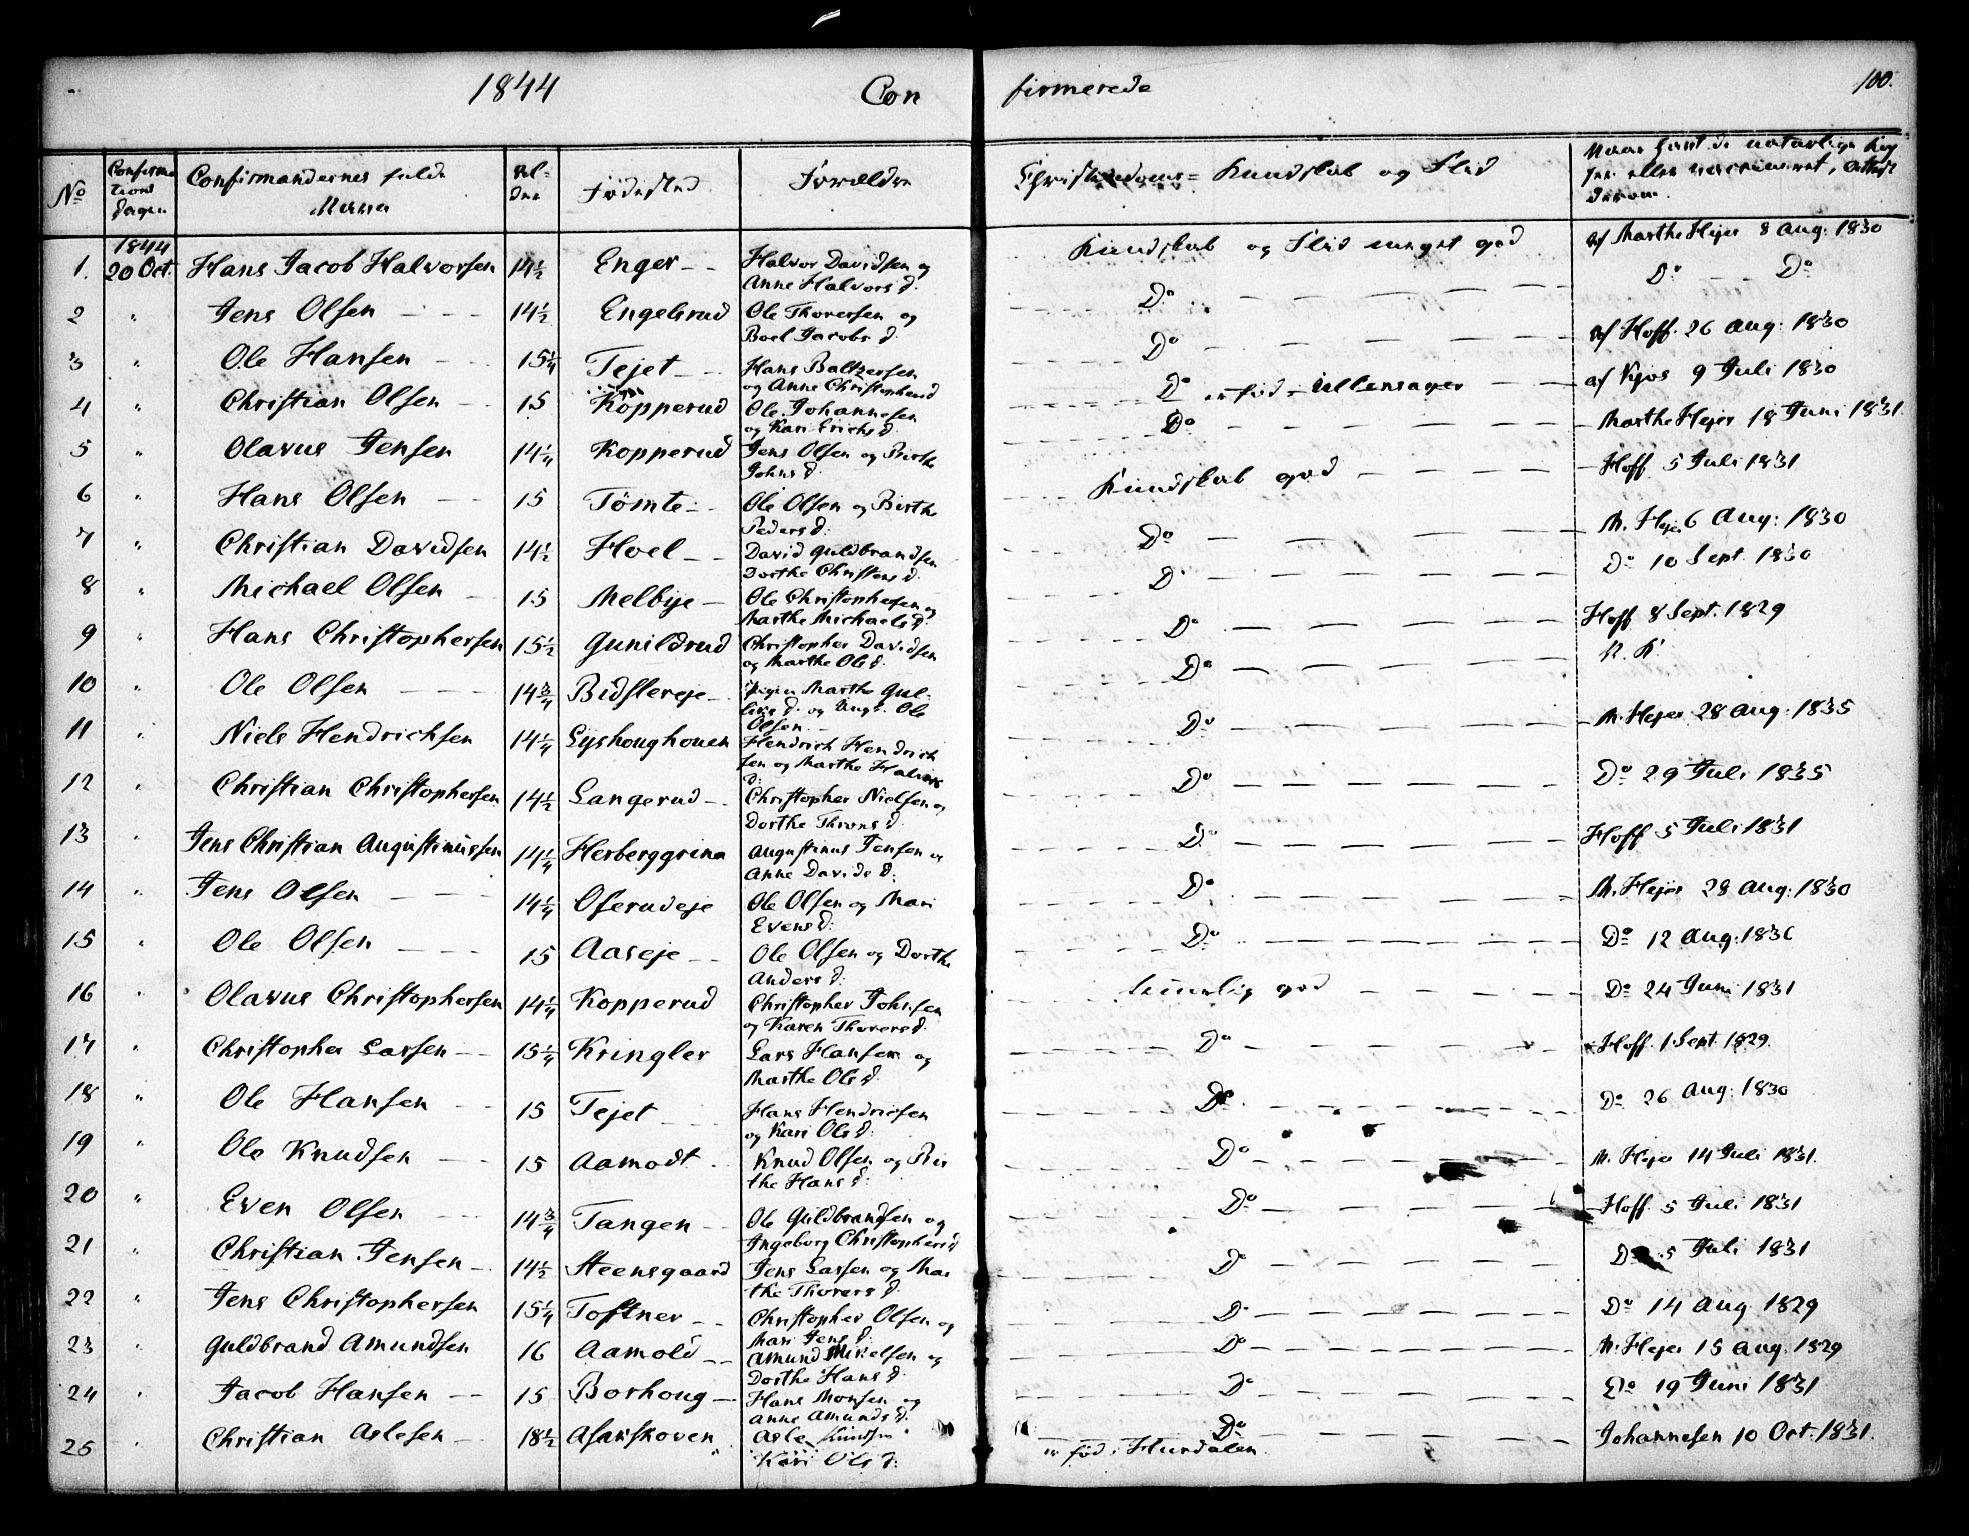 1844 Confirmerede 100.
No Confirmationsdagen Confirmandernes fulde Navne Alder Fødested Forældre Christendoms= Kundskab og Flid
1. 1844 20 Oct. Hans Jacob Halvorsen 14½ Enger Halvor Davidsen og Anne Halvorsd. Kundskab og Flid meget god af Marthe Hejer 8 Aug. 1830
2 " Jens Olsen 14½ Engelsrud Ole Thoversen og Boel Jacobsd. Do Do Do
3 " Ole Hansen 15¼ Tejet Hans Baltzersen og Anne Christophersd Do af Hoff. 26 Aug: 1830
4 " Christian Olsen 15 Kopperud Ole Johannesen og Kari Erichsd. Do er fød i Ullensager af Kjos 9 Juli 1830
5 " Olavus Jensen 14¼ Kopperud Jens Olsen og Birthe Johnsd. Do Marthe Hejer 18 Juni 1831.
6 " Hans Olsen 15 Tömte Ole Olsen og Birthe Pedersd: Kundskab god Hoff 5 Juli 1831
7 " Christian Davidsen 14½ Hoel David Guldbrandsen Dorthe Christensd. Do M. Hejer 6 Aug: 1830
8 " Michael Olsen 15 Melbye Ole Christophersen og Marthe Michaelsd. Do Do 10 Sept. 1830
9 " Hans Christophersen 15½ Gunildrud Christopher Davidsen og Marthe Olsd. Do Hoff 8 Sept. 1829
10 " Ole Olsen 14¾ Bidslereje Pigen Marthe Gulliksd. og Ungk. Ole Olsen Do N. K
11 " Niels Hendrichsen 14¼ Lyshoughouen Hendrich Hendrichsen og Marthe Halvorsd: Do M. Hejer 28 Aug: 1835
12 " Christian Christophersen 14½ Langerud Christopher Nielsen og Dorthe Thronsd. Do Do 29 Juli 1835
13 " Jens Christian Augustinussen 14¼ Herberggrina Augustinus Jensen og Anne Davidsd: Do Hoff 5 Juli 1831
14 " Jens Olsen 14¼ Oserudeje Ole Olsen og Mari Evensd: Do M. Hejer 28 Aug: 1830
15 " Ole Olsen 15 Aaseje Ole Olsen og Dorthe Andersd: Do Do 12 Aug. 1836
16 " Olavus Christophersen 14¼ Kopperud Christopher Johnsen og Karen Thoversd. temmelig god Do 24 Juni 1831
17 " Christopher Larsen 15¼ Kringler Lars Hansen og Marthe Olsd. Do Hoff. 1 Sept. 1829.
18 " Ole Hansen 15 Tejet Hans Hendricsen og Kari Olsd: Do Do 26 Aug: 1830
19 " Ole Knudsen 15 Aamodt Knud Olsen og Birthe Hansd: Do M. Hejer 14 Juli 1831.
20 " Even Olsen 14¾ Tangen Ole Guldbrandsen og Ingeborg Christophersd Do Hoff. 5 Juli 1831
21 " Christian Jensen 14½ Steensgaard Jens Larsen og Marthe Thorersd. Do Do 5 Juli 1831
22 " Jens Christophersen 15¼ Toftner Christopher Olsen og Mari Jensd. Do Do 14 Aug 1829
23 " Guldbrand Amundsen 16 Aamold Amund Mikelsen og Dorthe Hansd. Do M. Hejer 15 Aug. 1829
24 " Jacob Hansen 15 Borhoug Hans Monsen og Anne Amundsd. Do Do 19 Juni 1831
25 " Christian Aslesen 18½ Asakskoven Asle Knudsen Kari Olsd: Do er fød i Hurdalen Johannesen 10 Oct. 1831.